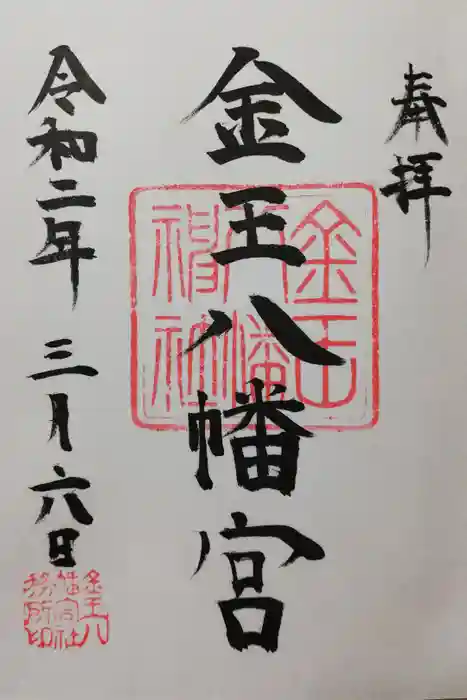 奉拝
金王八幡宮
令和二年 三月六日
金王八幡神社
金王八幡宮社務所印